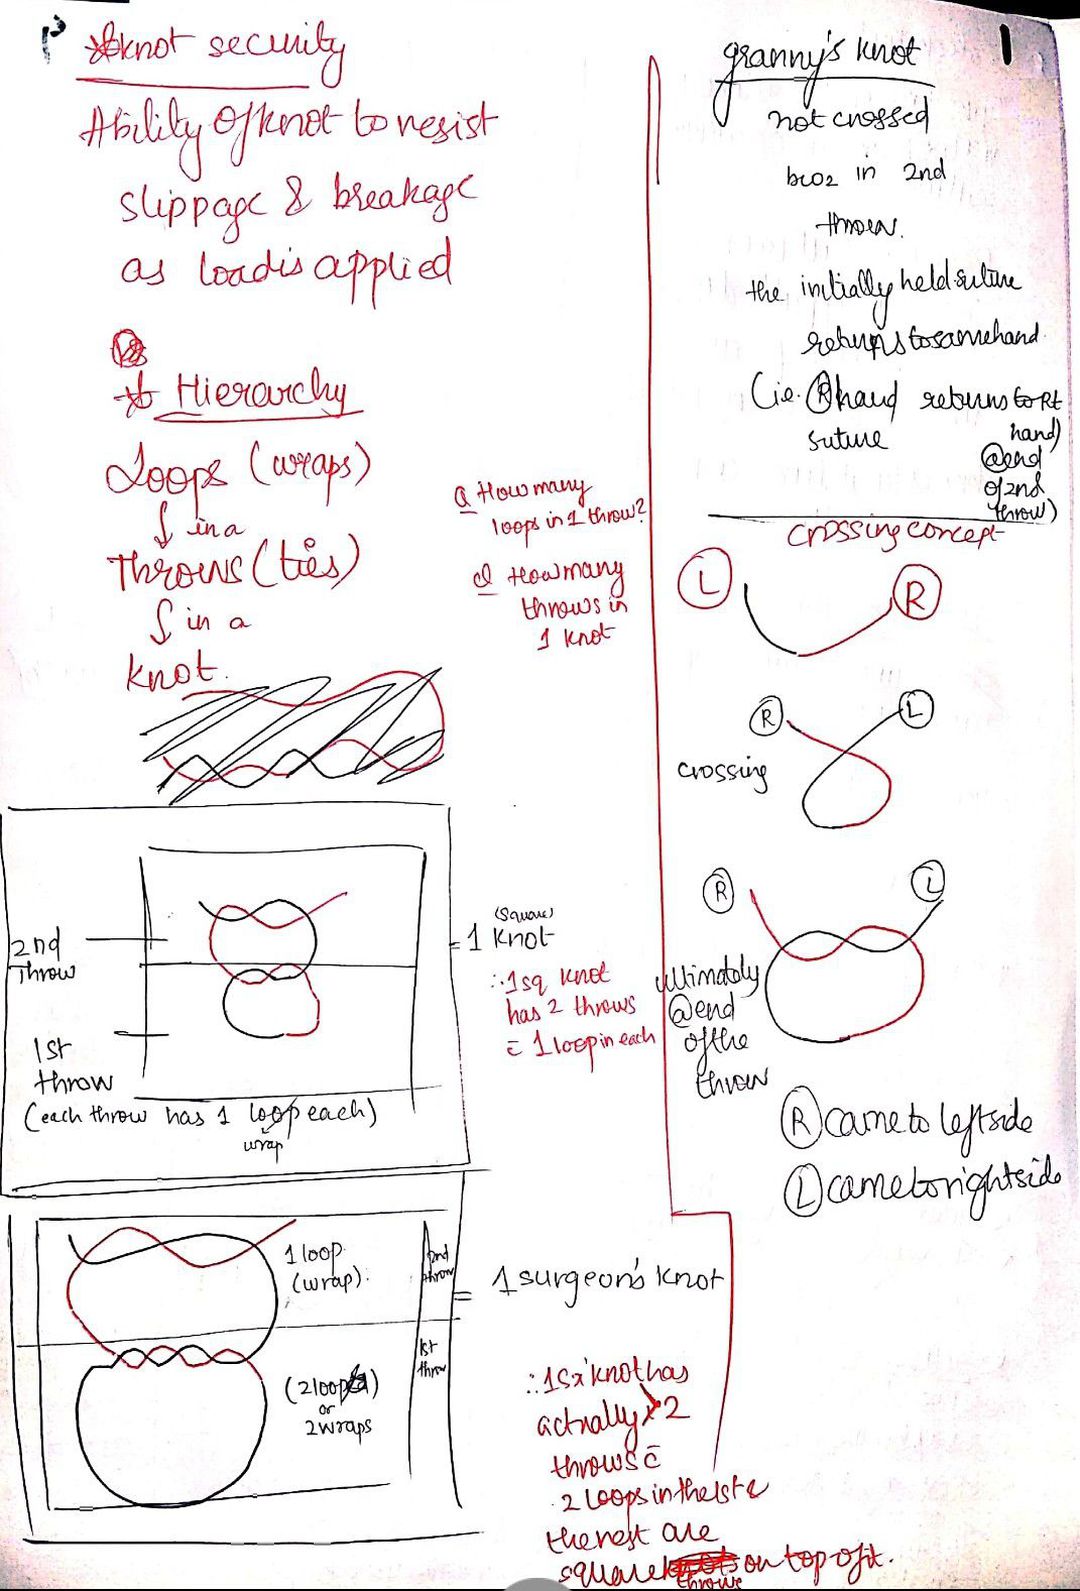 knot security
Ability of knot to resist
slippage & breakage
as load is applied
Hierarchy
Loops (wraps)
↓ in a
Throws (ties)
↓ in a
knot.
Q How many
loops in 1 throw?
Q How many
throws in
1 knot
2nd
Throw
1st
throw
(each throw has 1 loop each)
wrap
(Square)
= 1 knot
∴ 1 sq knot
has 2 throws
c̄ 1 loop in each
1 loop
(wrap).
2nd
throw
1st
throw
(2 loops)
or
2 wraps
= 1 surgeon's knot
∴ 1 Sx' knot has
actually 2
throws c̄
2 loops in the 1st &
the rest are
square throws on top of it.
1
granny's knot
not crossed
bcoz in 2nd
throw.
the initially held suture
returns to same hand.
(i.e. R hand returns to Rt
suture hand)
@ end
of 2nd
throw)
crossing concept
L R
R L
crossing
R L
ultimately
@ end
of the
throw
R came to left side
L came to right side